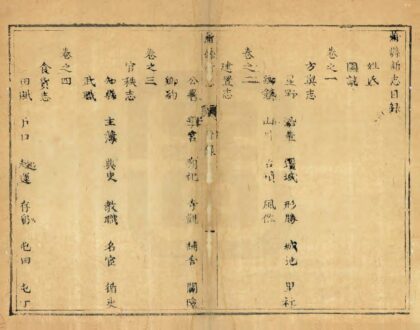 蕭縣新志目錄
姓氏
圖考
卷之一
方輿志
星野 沿革 疆域 形勝 城池 里社
鄉鎮 山川 古蹟 風俗
卷之二
建置志
公署 學宮 祠祀 寺觀 橋 關隘
鄉約
卷之三
官秩志
知縣 主簿 典史 教職 名宦 循吏
武職
卷之四
食貨志
田賦 戶口 起運 存留 屯田 屯丁